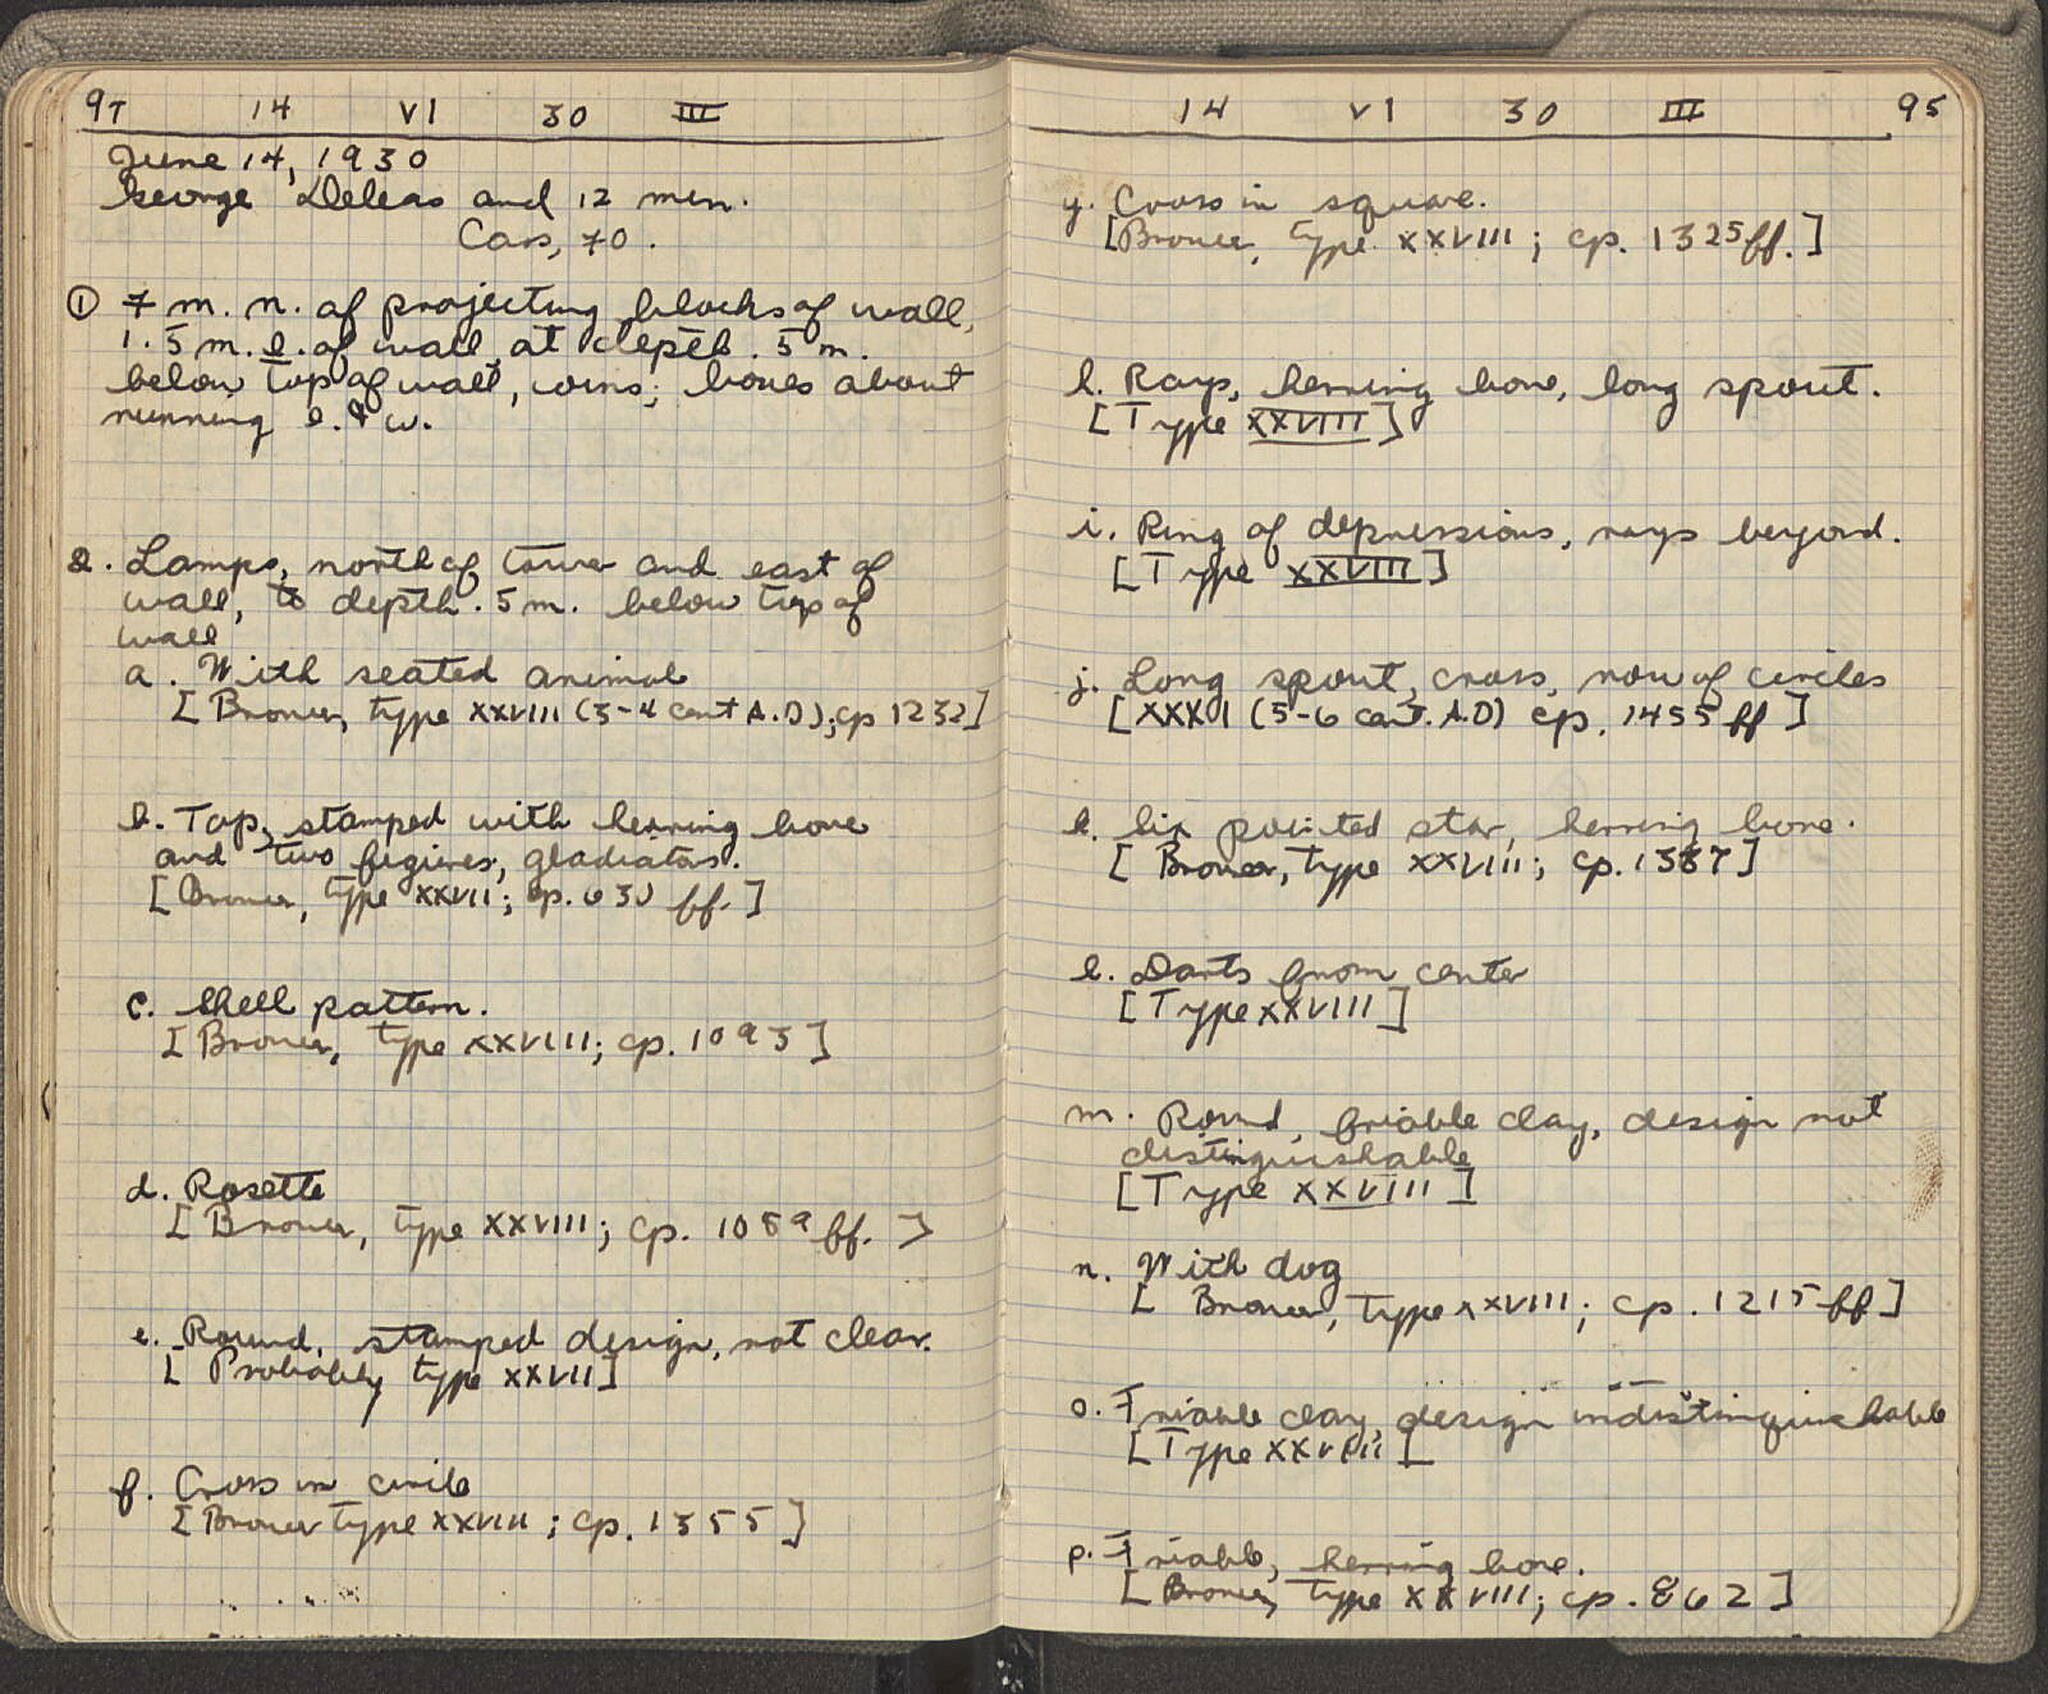 94 14 VI 30 III
June 14, 1930
George Deleas and 12 men.
Cars, 70.
① 7 m. n. of projecting blocks of wall,
1.5 m. e. of wall, at depth .5 m.
below top of wall, coins; bones about
running e. & w.
2. Lamps, north of tower and east of
wall, to depth .5 m. below top of
wall
a. With seated animal
[Broneer, type XXVIII (3-4 cent A.D); cp 1232]
b. Top, stamped with herring bone
and two figures, gladiators.
[Broneer, type XXVII; cp. 630 ff.]
c. Shell pattern.
[Broneer, type XXVIII; cp. 1093]
d. Rosette
[Broneer, type XXVIII; cp. 1089 ff.]
e. Round, stamped design, not clear.
[Probably type XXVII]
f. Cross in circle
[Broneer type XXVIII; cp. 1355]
14 VI 30 III 95
g. Cross in square.
[Broneer, type XXVIII; cp. 1325 ff.]
h. Rays, herring bone, long spout.
[Type XXVIII]
i. Ring of depressions, rays beyond.
[Type XXVIII]
j. Long spout, cross, row of circles
[XXXI (5-6 cent. A.D) cp. 1455 ff]
k. Six pointed star, herring bone.
[Broneer, type XXVIII; cp. 1387]
l. Darts from center
[Type XXVIII]
m. Round, friable clay, design not
distinguishable
[Type XXVIII]
n. With dog
[Broneer, type XXVIII; cp. 1215 ff]
o. Friable clay, design indistinguishable
[Type XXVIII [
p. Friable, herring bone.
[Broneer, type XXVIII; cp. 862]